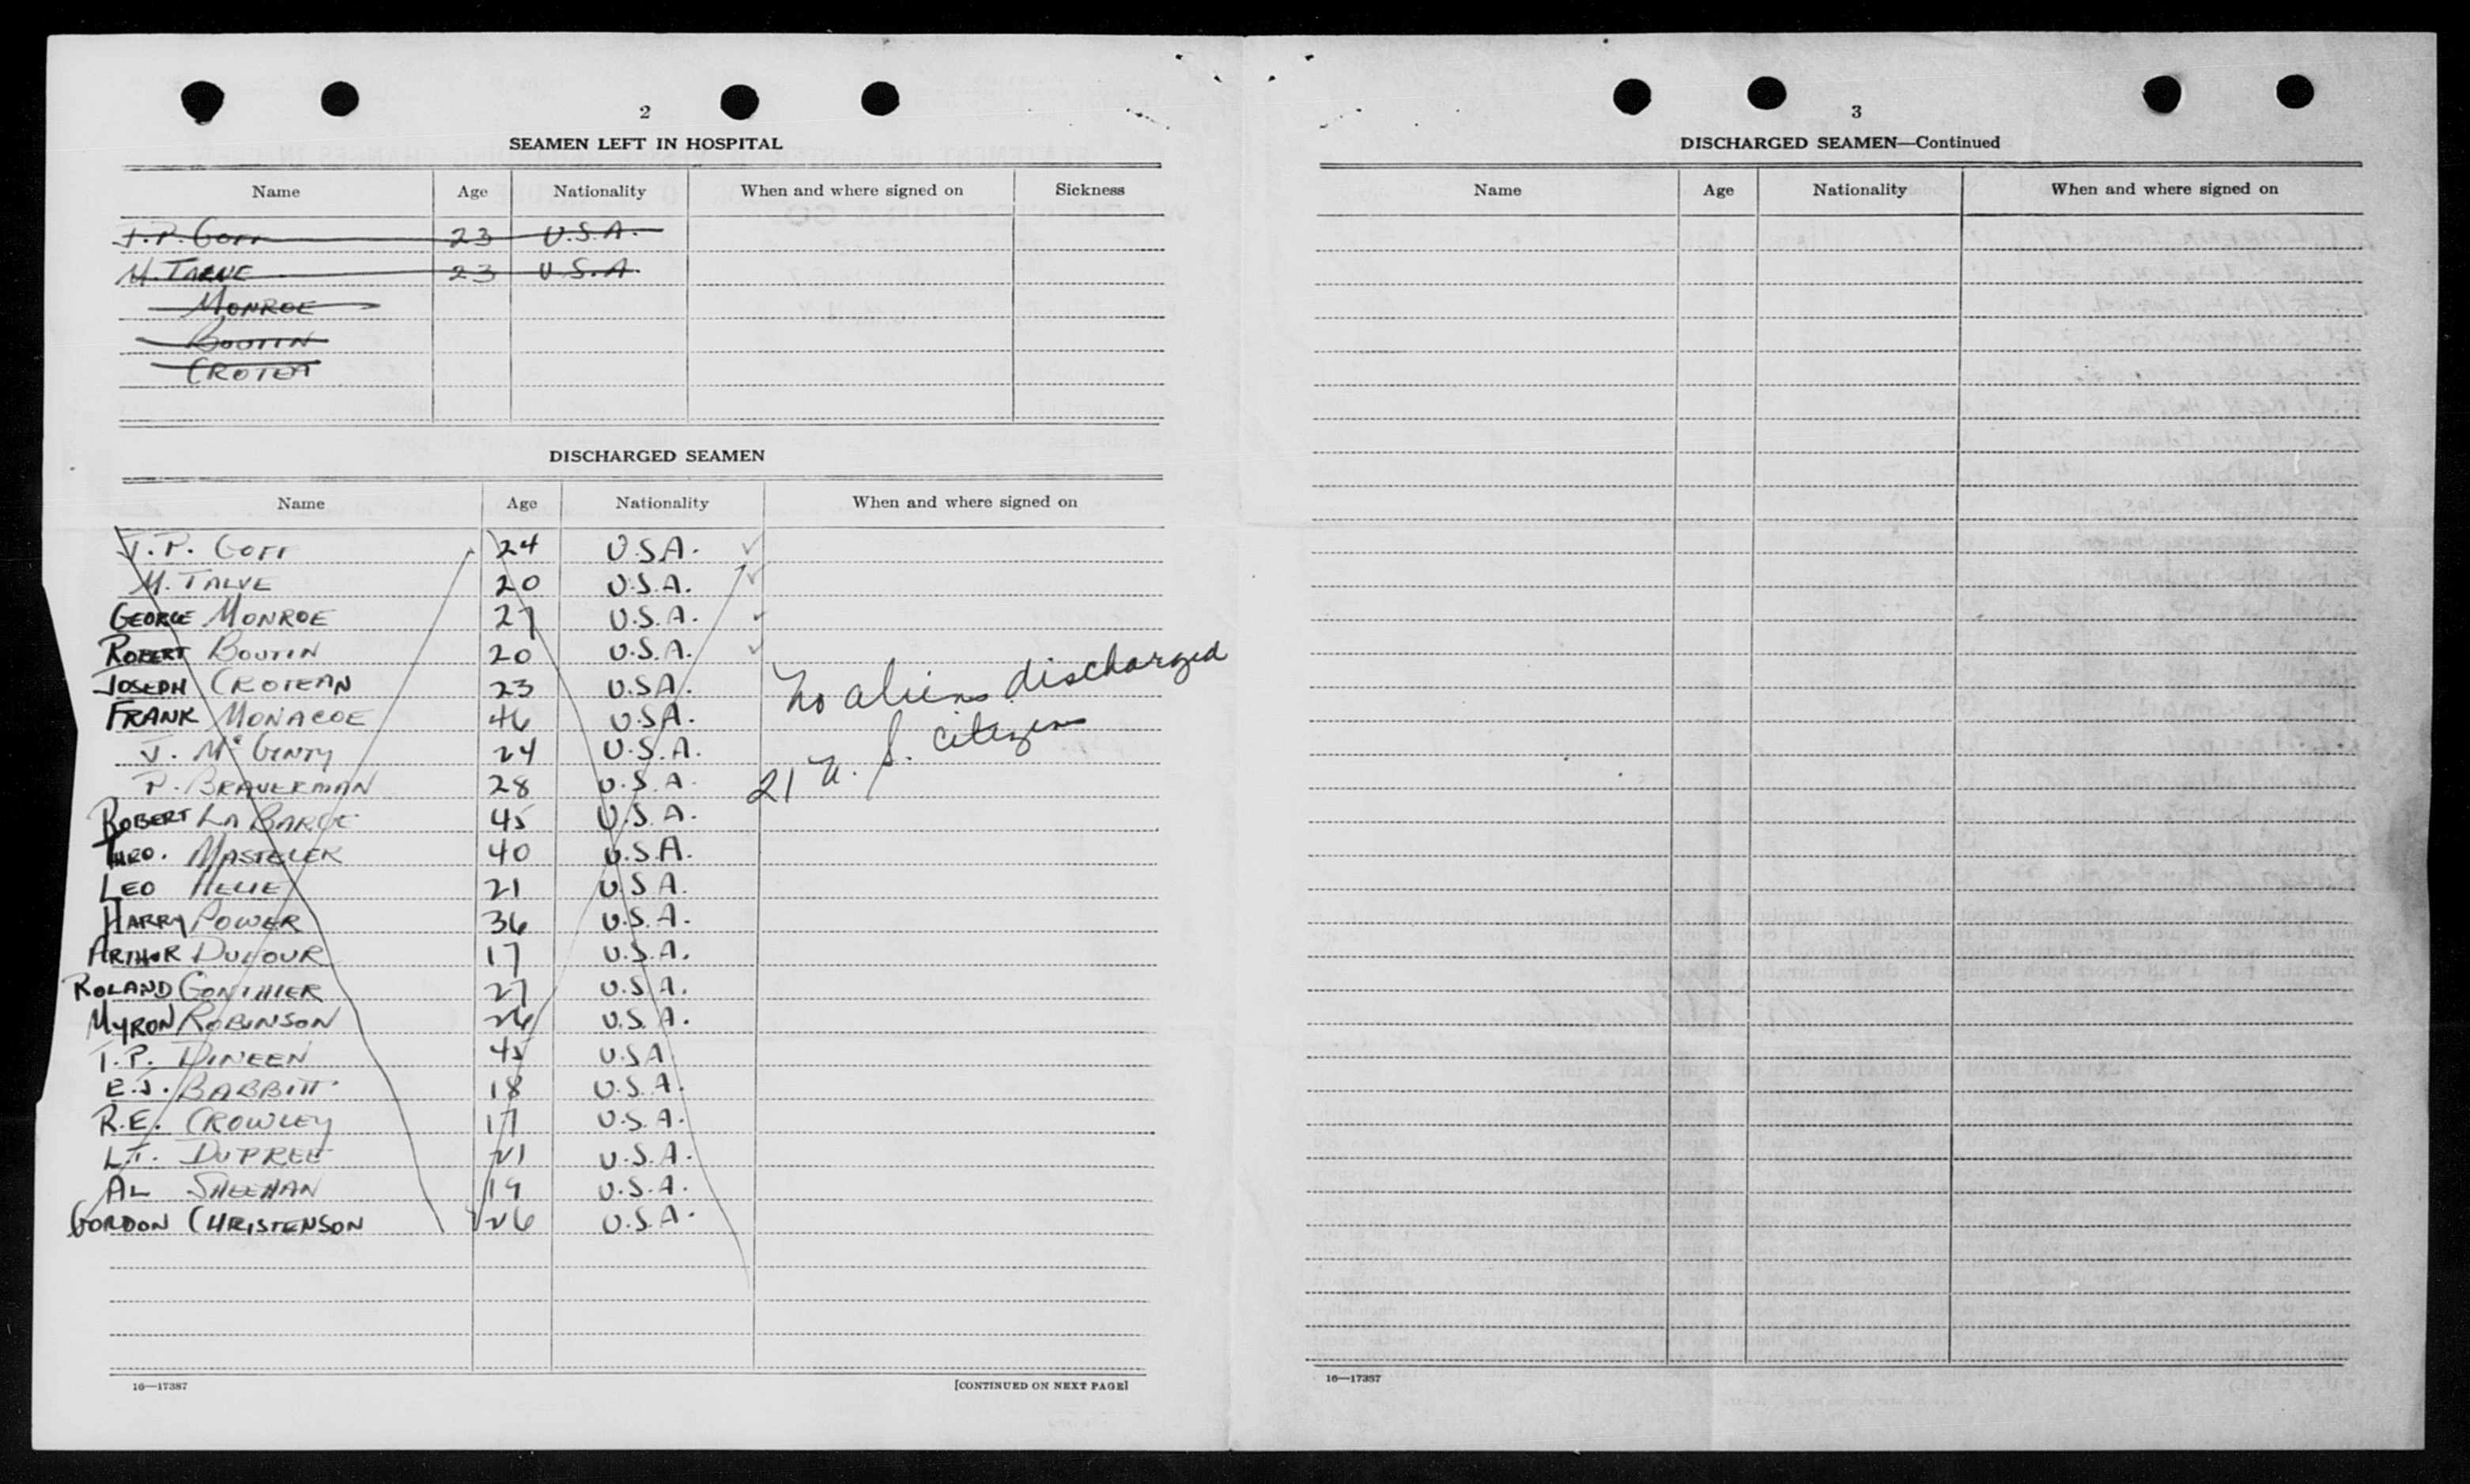 2
SEAMEN LEFT IN HOSPITAL
Name Age Nationality When and where signed on Sickness
J. P. GOFF 23 U.S.A.
M. TALVE 23 U.S.A.
MONROE
BOUTIN
CROTEA
DISCHARGED SEAMEN
Name Age Nationality When and where signed on
J. P. GOFF 24 U.S.A.
M. TALVE 20 U.S.A.
GEORGE MONROE 27 U.S.A.
ROBERT BOUTIN 20 U.S.A.
JOSEPH CROTEAN 23 U.S.A.
FRANK MONACOE 46 U.S.A.
J. McGINTY 24 U.S.A.
P. BRAVERMAN 28 U.S.A.
ROBERT LA BARGE 45 U.S.A.
THEO. MASTELER 40 U.S.A.
LEO HELIE 21 U.S.A.
HARRY POWER 36 U.S.A.
ARTHUR DUFOUR 17 U.S.A.
ROLAND GONTHIER 27 U.S.A.
MYRON ROBINSON 26 U.S.A.
T. P. DINEEN 45 U.S.A
E. J. BABBITT 18 U.S.A.
R. E. CROWLEY 17 U.S.A.
DUPREE 21 U.S.A.
AL SHEEHAN 19 U.S.A.
GORDON CHRISTENSON 26 U.S.A.
No aliens discharged
21 U. S. citizens
16—17387 [CONTINUED ON NEXT PAGE]
3
DISCHARGED SEAMEN—Continued
Name Age Nationality When and where signed on
16—17387